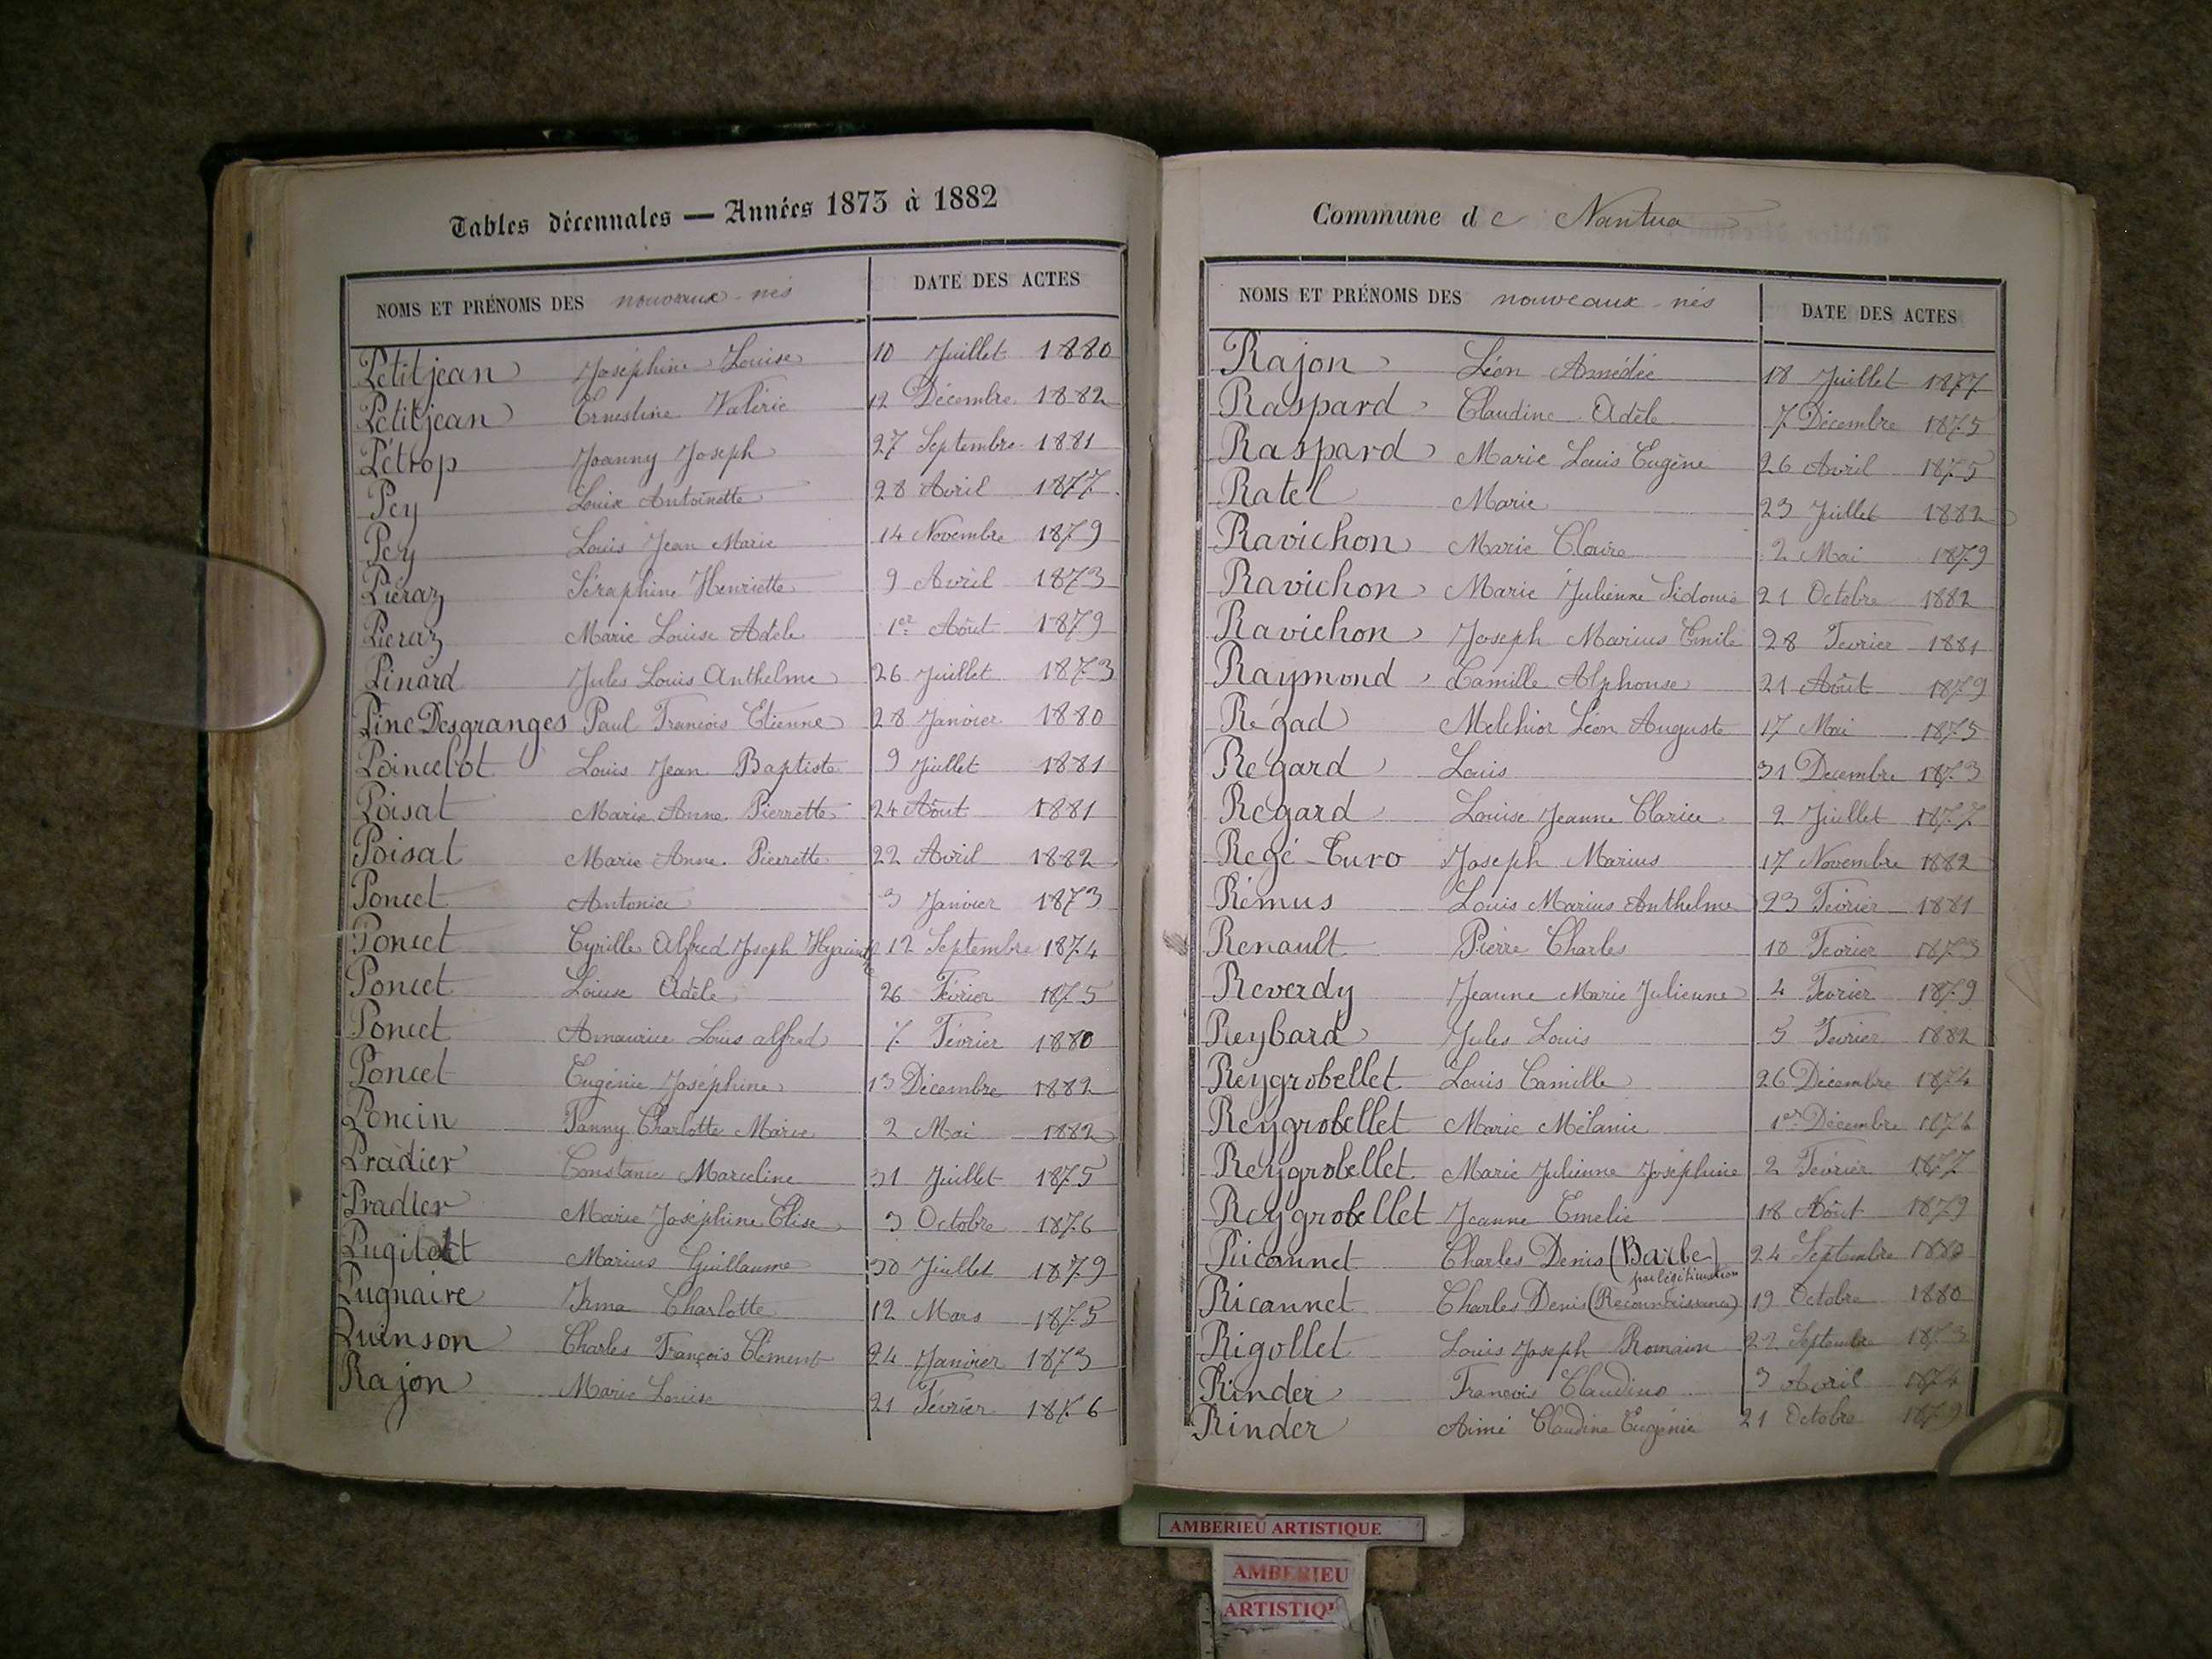 Tables décennales — Années 1873 à 1882
NOMS ET PRÉNOMS DES nouveaux-nés DATE DES ACTES
Petitjean Joséphine Louise 10 Juillet 1880
Petitjean Ernestine Valérie 12 Décembre 1882
Pétrop Joanny Joseph 27 Septembre 1881
Pey Louise Antoinette 28 Avril 1877
Pey Louis Jean Marie 14 Novembre 1879
Piéraz Séraphine Henriette 9 Avril 1873
Pieraz Marie Louise Adèle 1er Août 1879
Pinard Jules Louis Anthelme 26 Juillet 1873
Pine Desgranges Paul François Etienne 28 Janvier 1880
Poincelot Louis Jean Baptiste 9 Juillet 1881
Poisat Marie Anne Pierrette 24 Août 1881
Poisat Marie Anne Pierrette 22 Avril 1882
Poncet Antonia 3 Janvier 1873
Poncet Cyrille Alfred Joseph Hyacinthe 12 Septembre 1874
Poncet Louise Adèle 26 Février 1875
Poncet Amaurice Louis Alfred 7 Février 1880
Poncet Eugénie Joséphine 13 Décembre 1882
Poncin Fanny Charlotte Marie 2 Mai 1882
Pradier Constance Marceline 31 Juillet 1875
Pradier Marie Joséphine Elise 3 Octobre 1876
Marius Guillaume 30 Juillet 1879
Pugnaire Irma Charlotte 12 Mars 1875
Quinson Charles François Clément 24 Janvier 1873
Rajon Marie Louise 21 Février 1876
Commune de Nantua
NOMS ET PRÉNOMS DES nouveaux-nés DATE DES ACTES
Rajon Léon Amédée 18 Juillet 1877
Raspard Claudine Adèle 7 Décembre 1875
Raspard Marie Louis Eugène 26 Avril 1875
Ratel Marie 23 Juillet 1882
Ravichon Marie Claire 2 Mai 1879
Ravichon Marie Julienne Sidonie 21 Octobre 1882
Ravichon Joseph Marius Emile 28 Fevrier 1881
Raymond Camille Alphonse 21 Août 1879
Régad Melchior Léon Auguste 17 Mai 1875
Régard Louis 31 Decembre 1873
Regard Louise Jeanne Clarice 2 Juillet 1877
Regé-Turo Joseph Marius 17 Novembre 1882
Rémus Louis Marius Anthelme 23 Février 1881
Renault Pierre Charles 10 Fevrier 1873
Reverdy Jeanne Marie Julienne 4 Fevrier 1879
Reybard Jules Louis 5 Fevrier 1882
Reygrobellet Louis Camille 26 Décembre 1874
Reygrobellet Marie Mélanie 1er Décembre 1874
Reygrobellet Marie Julienne Joséphine 2 Février 1877
Reygrobellet Jeanne Emelie 18 Août 1879
Ricannet Charles Denis (Barbe) 24 Septembre 1880
par légitimation
Ricannet Charles Denis (Reconnaissance) 19 Octobre 1880
Rigollet Louis Joseph Romain 22 Septembre 1873
Rinder François Claudius 3 Avril 1874
Rinder Aimé Claudine Eugénie 21 Octobre 1879
AMBERIEU ARTISTIQUE
AMBERIEU
ARTISTIQU